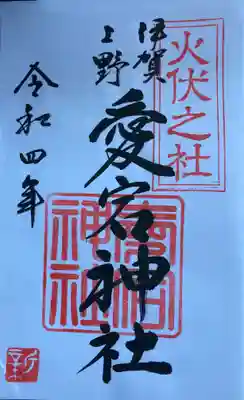 火伏之社
伊賀
上野
愛宕神社
愛宕
神社
令和四年